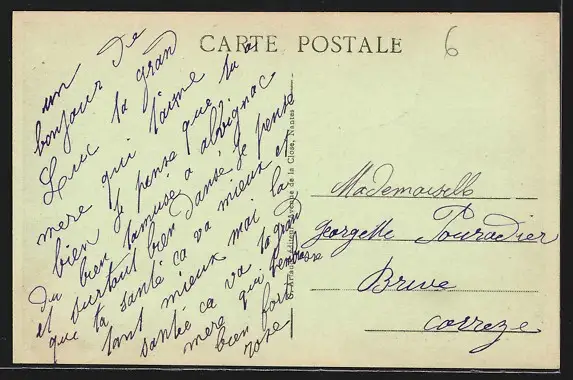 CARTE POSTALE
6
un
bonjour de
Luc ta grand
mere qui t'aime
bien Je pense que tu a
du bien tamuse a albignac
et surtout bien dansé Je pense
que ta santé ca va mieux et
tant mieux moi la
santé ca va ta grand
mere qui tembrasse
bien fort
rose
de la Close, Nantes
Mademoiselle
Georgette Pouradier
Brive
correze